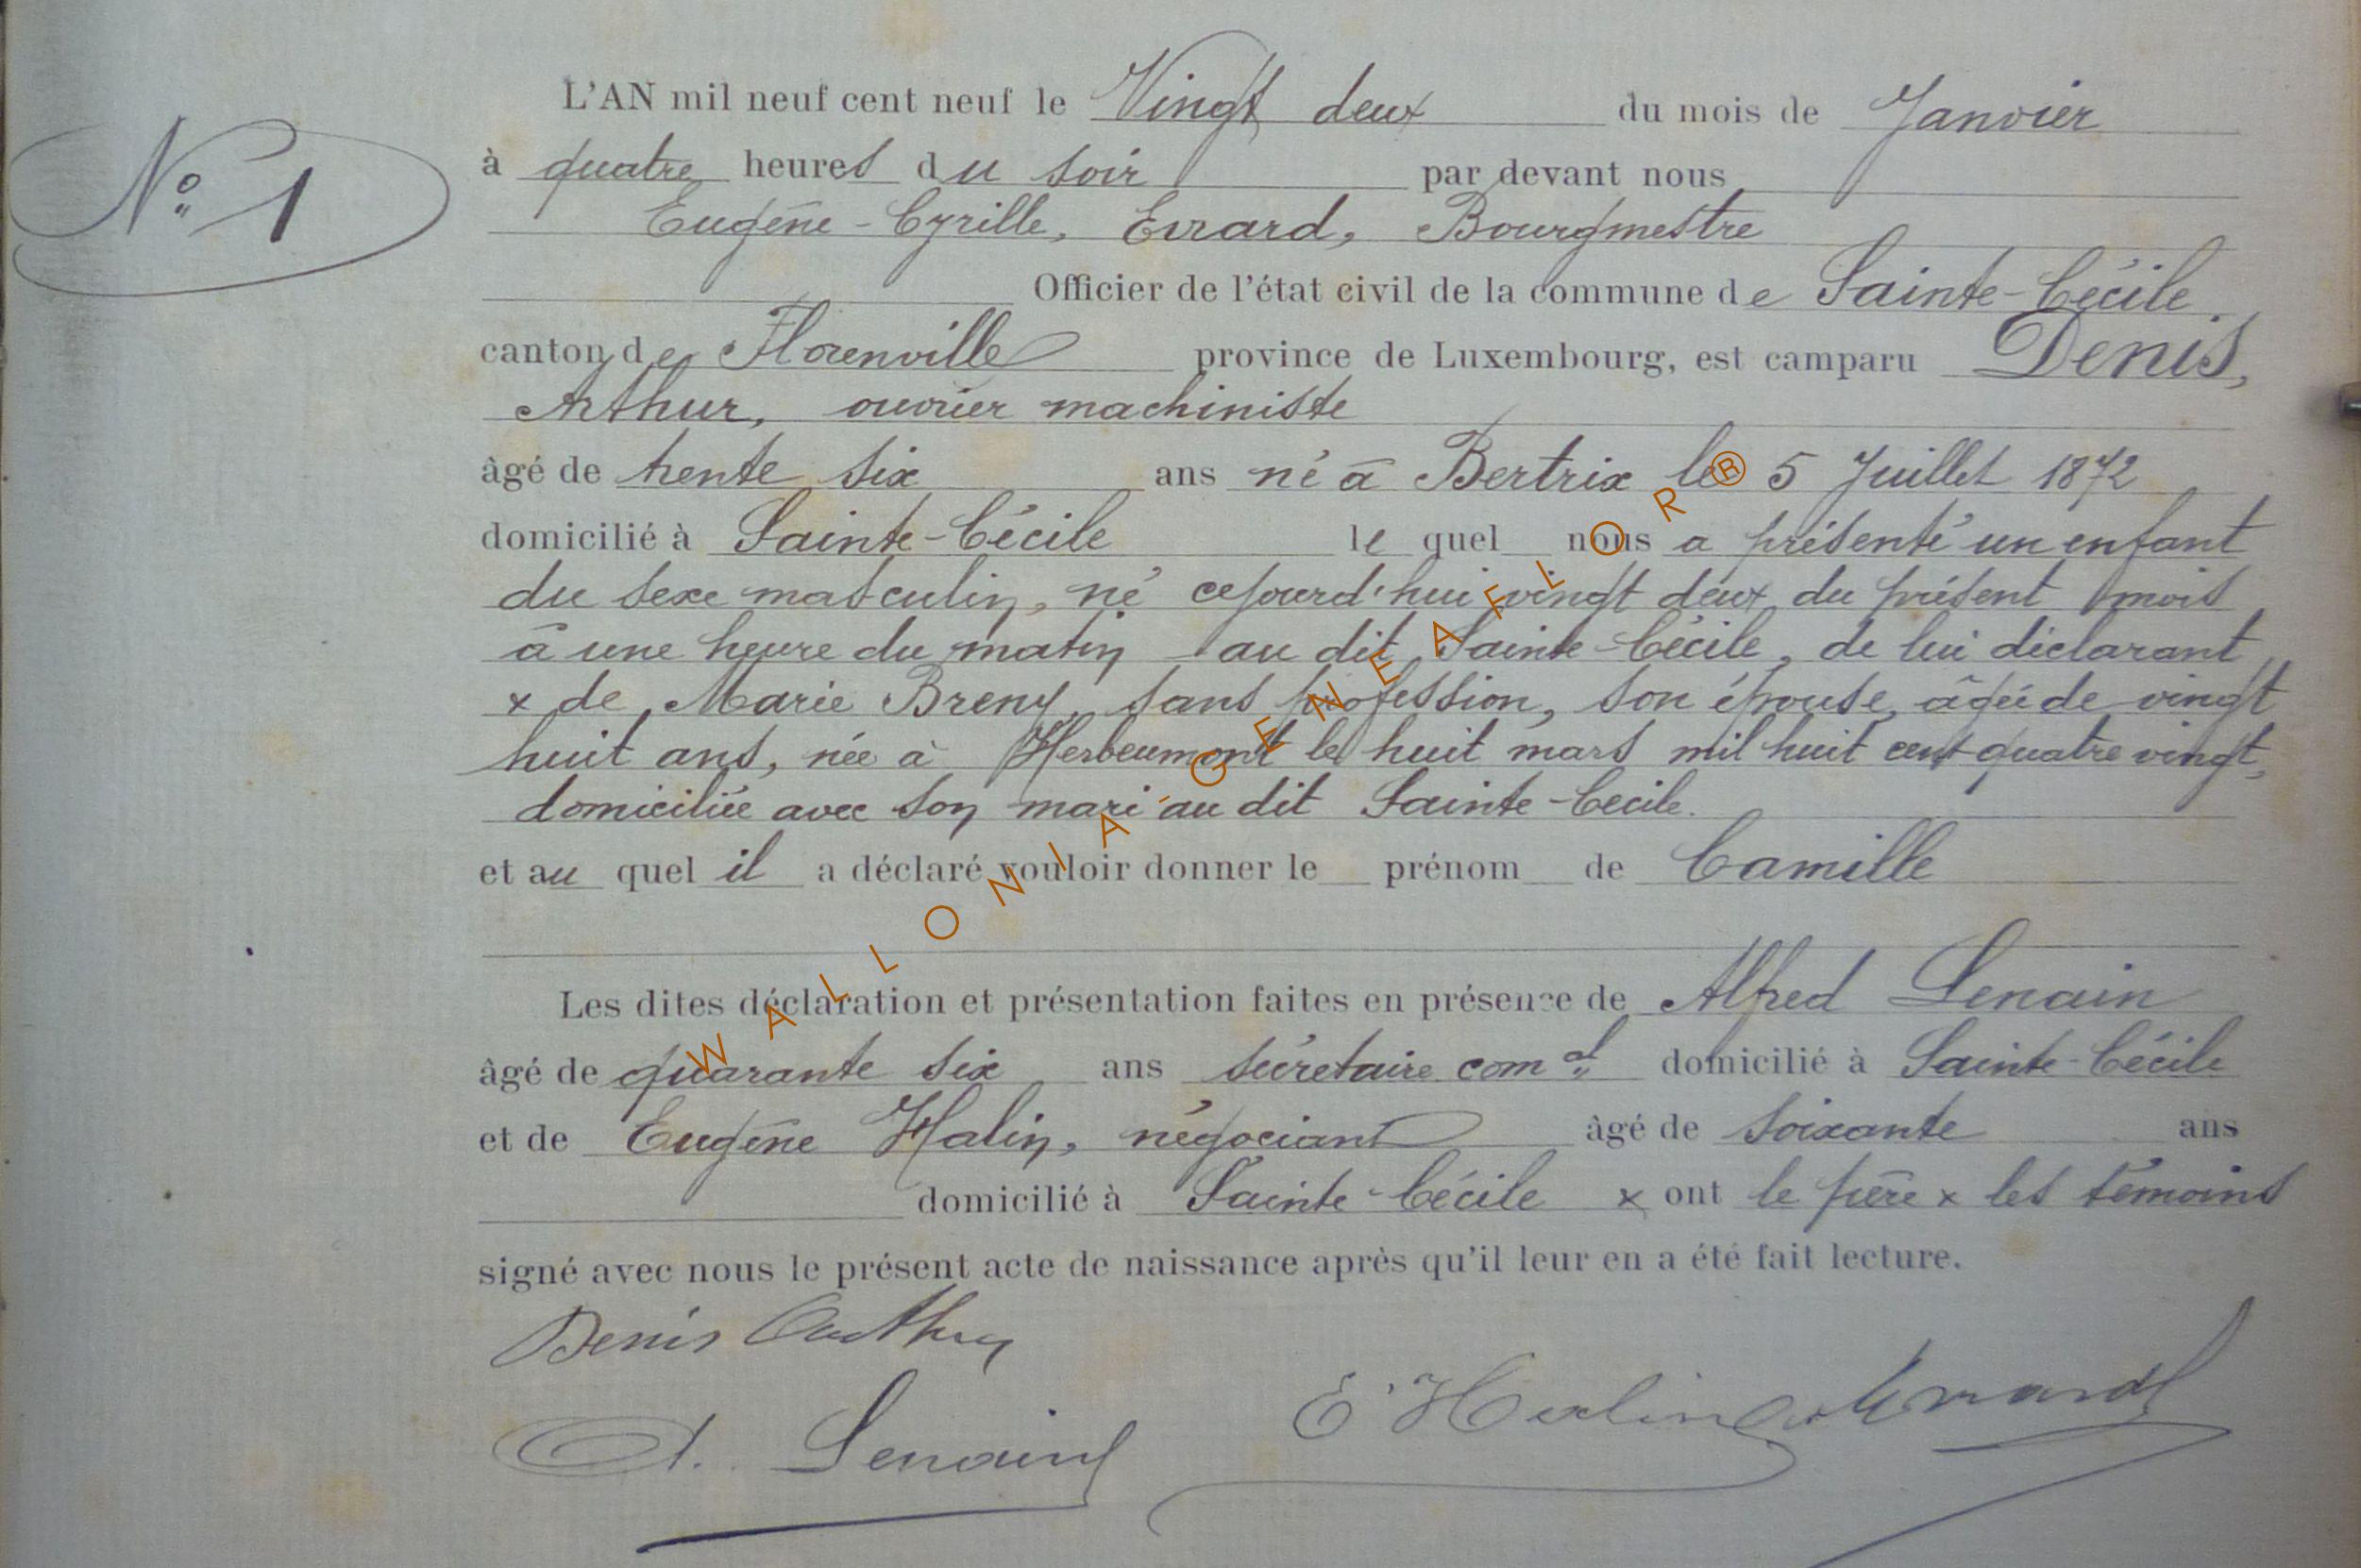 N° 1
L'AN mil neuf cent neuf le Vingt deux du mois de Janvier
à quatre heures du soir par devant nous
Eugène-Cyrille, Evrard, Bourgmestre
Officier de l'état civil de la commune de Sainte-Cécile.
canton de Florenville province de Luxembourg, est camparu Denis,
Arthur, ouvrier machiniste
âgé de trente six ans né à Bertrix le 5 Juillet 1872
domicilié à Sainte-Cécile le quel nous a présenté un enfant
du sexe masculin, né cejourd'hui vingt deux du présent mois
à une heure du matin au dit Sainte-Cécile, de lui déclarant
x de Marie Breny, sans profession, son épouse, âgée de vingt
huit ans, née à Herbeumont le huit mars mil huit cent quatre vingt,
domiciliée avec son mari au dit Sainte-Cécile.
et au quel il a déclaré vouloir donner le prénom de Camille
Les dites déclaration et présentation faites en présence de Alfred Lenain
âgé de quarante six ans secrétaire com.al domicilié à Sainte-Cécile
et de Eugène Halin, négociant âgé de soixante ans
domicilié à Sainte-Cécile x ont le père x les témoins
signé avec nous le présent acte de naissance après qu'il leur en a été fait lecture.
Denis Arthur
E. Halin Evrard
A. Lenain
WALLONIA-GENEAFLOR®